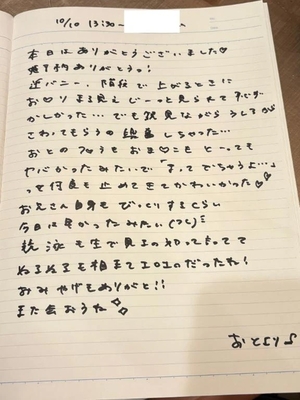 10/10 13:30~
本日はありがとうございました♡
予約ありがとうっ!
逆バニー、階段で上がるときに
お♡り まる見え じーっと見られて
かしかった… でも 見ながらうしろから
さわってもらうの しちゃった…
おとの もお ま○こも とっても
ヤバかったみたいで「まってでちゃうよ…」
って何度も止めてきてかわいかった♡♡
お兄さん自身もびっくりするくらい
今日は良かったみたい
も生で見るの初って言ってて
ぬるぬるも相まてエロエロだったね!
おみやげもありがと!!
また会おうね
おとより♪